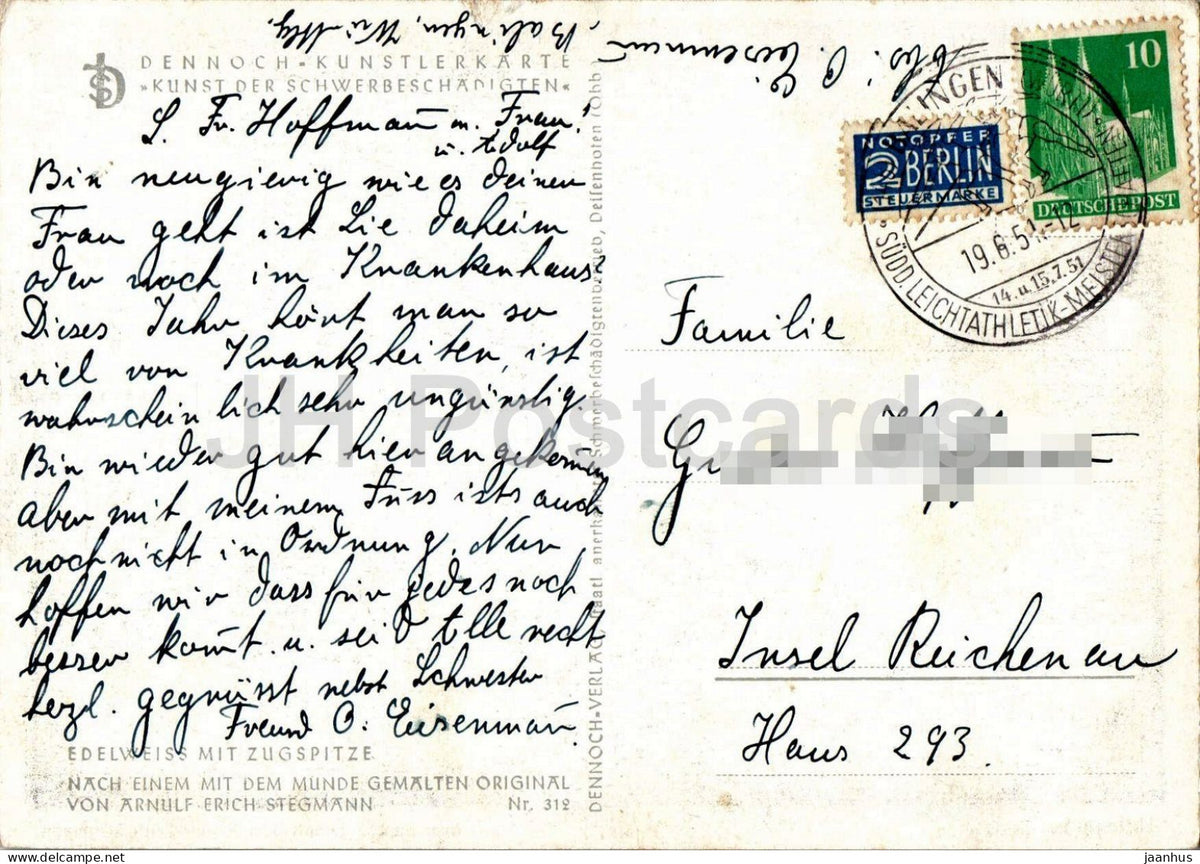 Abs: O. Eisenmann, Balingen, Württbg.
DENNOCH-KÜNSTLERKARTE
»KUNST DER SCHWERBESCHÄDIGTEN«
L. Fr. Hoffmann m. Frau!
u. Adolf
Bin neugierig wie es deiner
Frau geht ist Sie daheim
oder noch im Krankenhaus?
Dieses Jahr hört man so
viel von Krankheiten, ist
wahrscheinlich sehr ungünstig.
Bin wieder gut hier angekom̅en
aber mit meinem Fuss ists auch
noch nicht in Ordnung. Nur
hoffen wir dass für jedes noch
besser kom̅t. u. seid Alle recht
herzl. gegrüsst nebst Schwester
Freund O. Eisenman̅.
EDELWEISS MIT ZUGSPITZE
NACH EINEM MIT DEM MUNDE GEMALTEN ORIGINAL
VON ARNULF ERICH STEGMANN Nr. 312
DENNOCH-VERLAG, staatl. anerkannter Schwerbeschädigtenbetrieb, Deisenhofen (Obb.)
NOTOPFER
2 BERLIN
STEUERMARKE
10
DEUTSCHE POST
BALINGEN
19.6.51.-12
14.u.15.7.51
SÜDD. LEICHTATHLETIK-MEISTERSCHAFTEN
Familie
Insel Reichenau
Haus 293.
JH Postcards
jaanhus